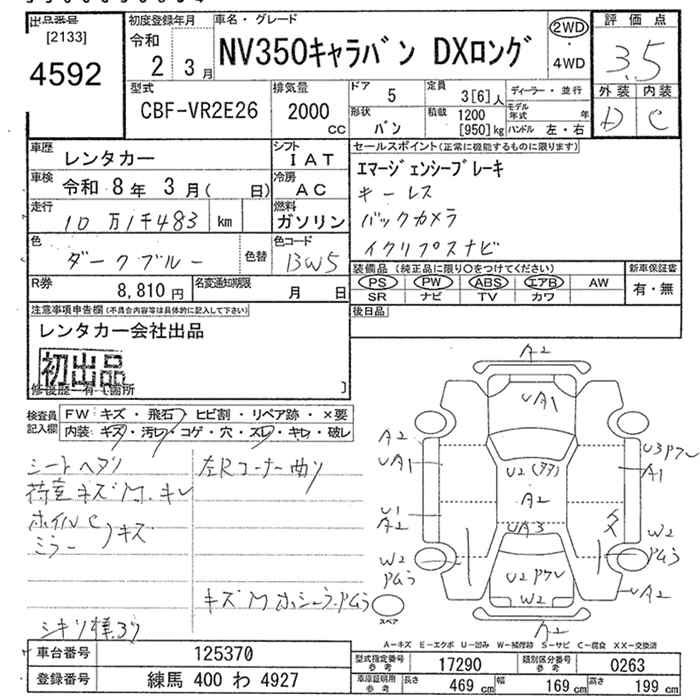 出品番号
[2133]
4592
初度登録年月
令和
2 3月
車名・グレード
NV350キャラバン DXロング
2WD
・
4WD
評価点
3.5
外装 内装
D C
型式
CBF-VR2E26
排気量
2000
cc
ドア
5
定員
3[6]人
ディーラー・並行
形状
バン
積載
1200
[950]kg
モデル年式 年
ハンドル 左・右
車歴
レンタカー
シフト
IAT
車検
令和 8年 3月( 日)
冷房
AC
走行
10万1千483 km
燃料
ガソリン
色
ダークブルー
色替
色コード
BW5
R券
8,810円
名変通知期限
月 日
セールスポイント(正常に機能するものに限ります)
エマージェンシーブレーキ
キーレス
バックカメラ
イクリプスナビ
装備品 (純正品に限り○をつけてください)
PS PW ABS エアB AW
SR ナビ TV カワ
新車保証書
有・無
後日品
注意事項申告欄(不具合内容等は具体的に記入して下さい)
レンタカー会社出品
初出品
修復歴-有 箇所
検査員
記入欄
FW キズ・飛石・ヒビ割・リペア跡・×要
内装 キズ・汚レ・コゲ・穴・スレ・キレ・破レ
シートヘタリ
左Rコーナー曲り
荷室キズM.キレ
ホイルC
ミラー キズ
A2
UA1
A2
UA1
U3アワレ
A1
U2(タタ)
A2
U1
A2
UA3
W2
W2
U2アワレ
W2
UA2
A2
スペア
A-キズ E-エクボ U-凹み W-補修跡 S-サビ C-腐食 XX-交換済
車台番号
125370
登録番号
練馬 400 わ 4927
型式指定番号
参考
17290
類別区分番号
参考
0263
車庫証明用
参考
長さ 469cm 幅 169cm 高さ 199cm